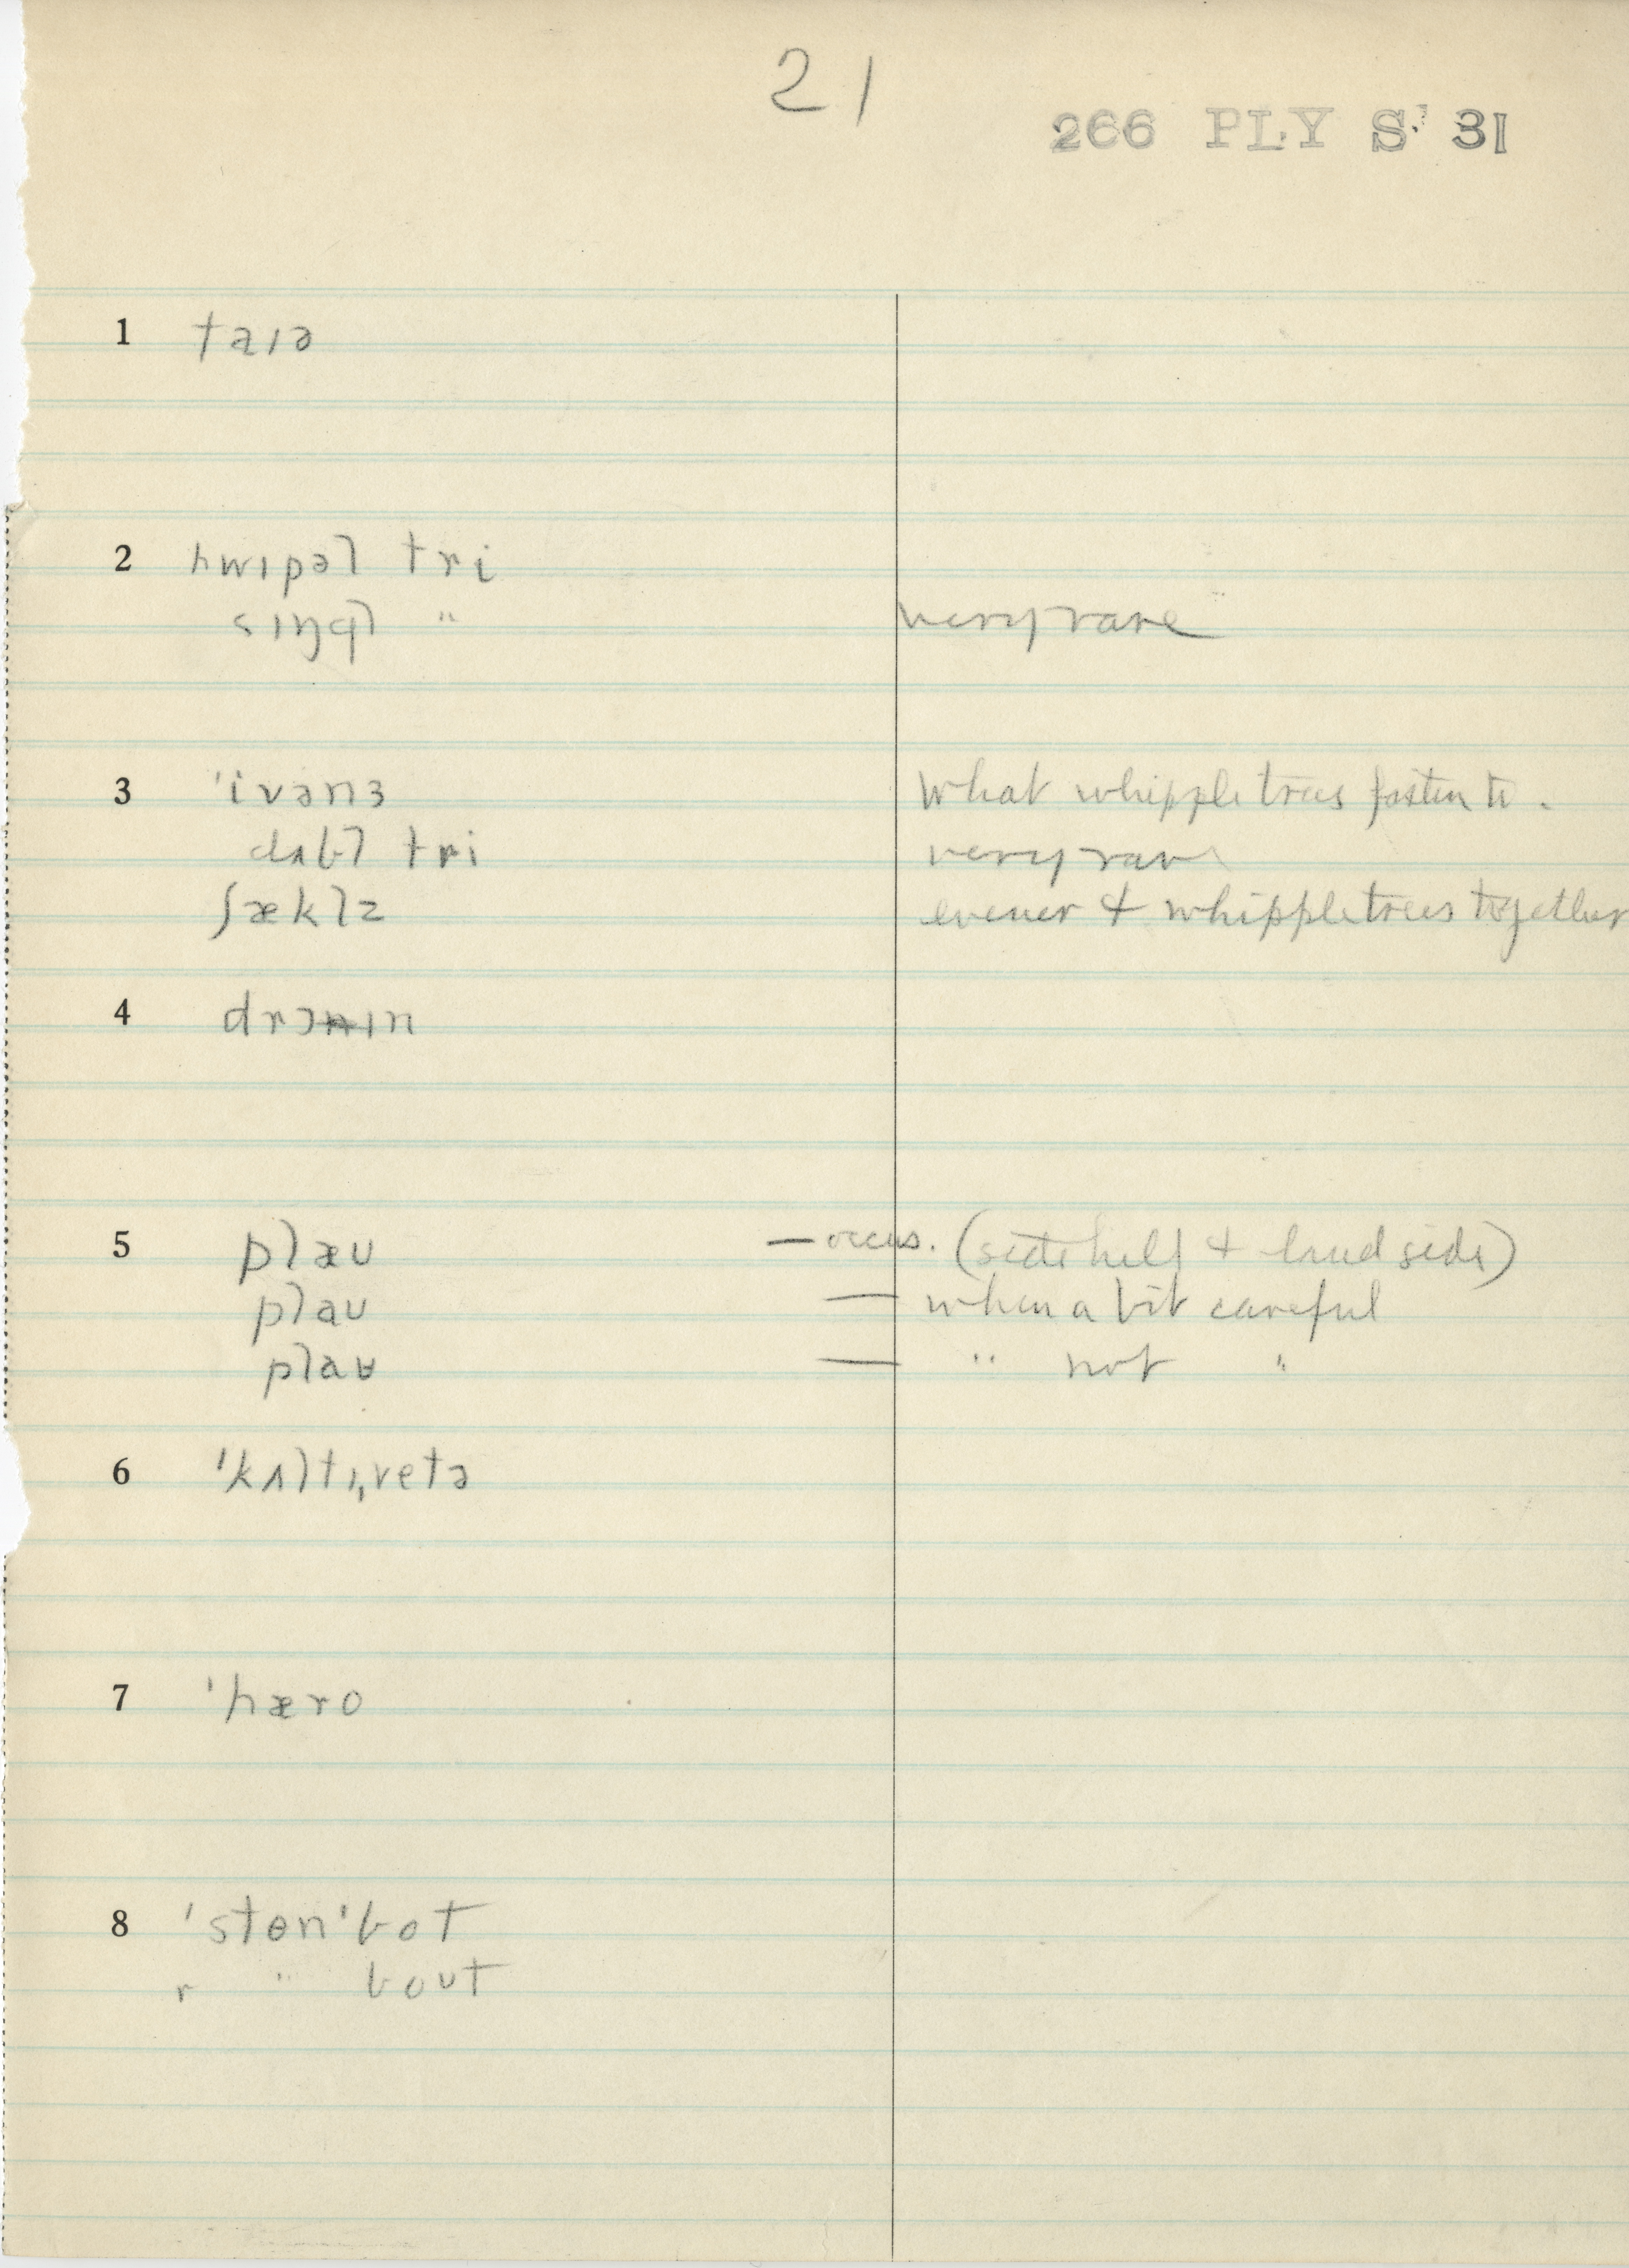 21
266 PLY S' 31
1 taɪə
2 hwɪpəl tri
sɪŋgl " very rare
3 'ivənɜ What whippletrees fasten to.
dʌbl tri very rare
ʃæklz evener & whippletrees together
4 drɔɪn
5 plæu — occus. ( & land side)
plau — when a bit careful
plaʉ — " not "
6 'kʌltɪˌvetə
7 'hæro
8 'stɵn'bot
r " bout